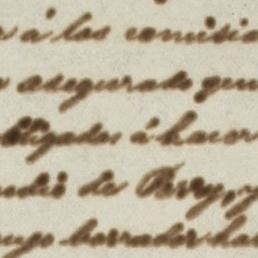 á los comisio
asegurado que
ligados á hacer
de Perry, y
borrador ha